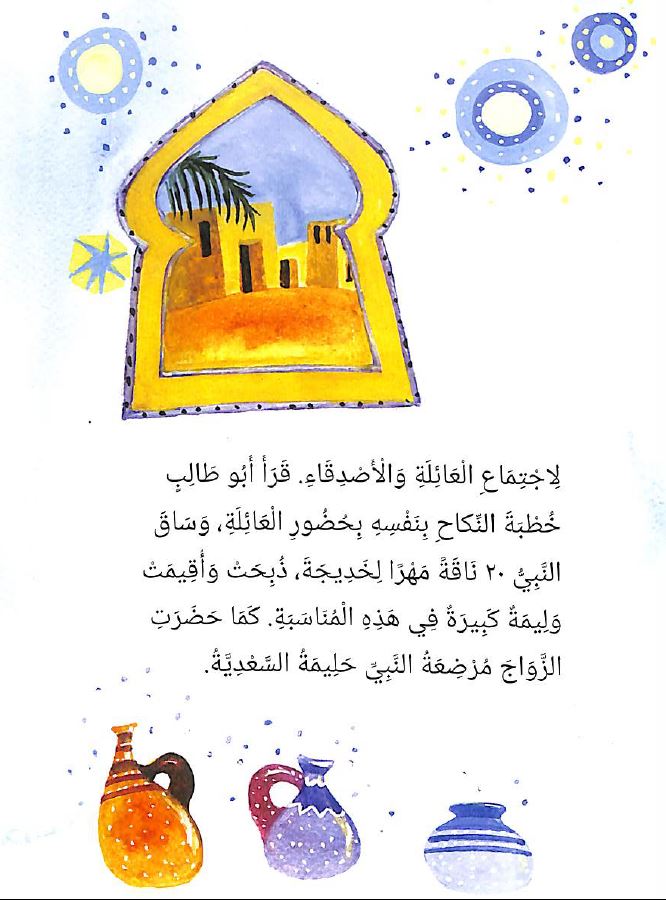 لِاجْتِمَاعِ الْعَائِلَةِ وَالْأَصْدِقَاءِ. قَرَأَ أَبُو طَالِبٍ
خُطْبَةَ النِّكَاحِ بِنَفْسِهِ بِحُضُورِ الْعَائِلَةِ، وَسَاقَ
النَّبِيُّ ٢٠ نَاقَةً مَهْرًا لِخَدِيجَةَ، ذُبِحَتْ وَأُقِيمَتْ
وَلِيمَةٌ كَبِيرَةٌ فِي هَذِهِ الْمُنَاسَبَةِ. كَمَا حَضَرَتِ
الزَّوَاجَ مُرْضِعَةُ النَّبِيِّ حَلِيمَةُ السَّعْدِيَّةُ.